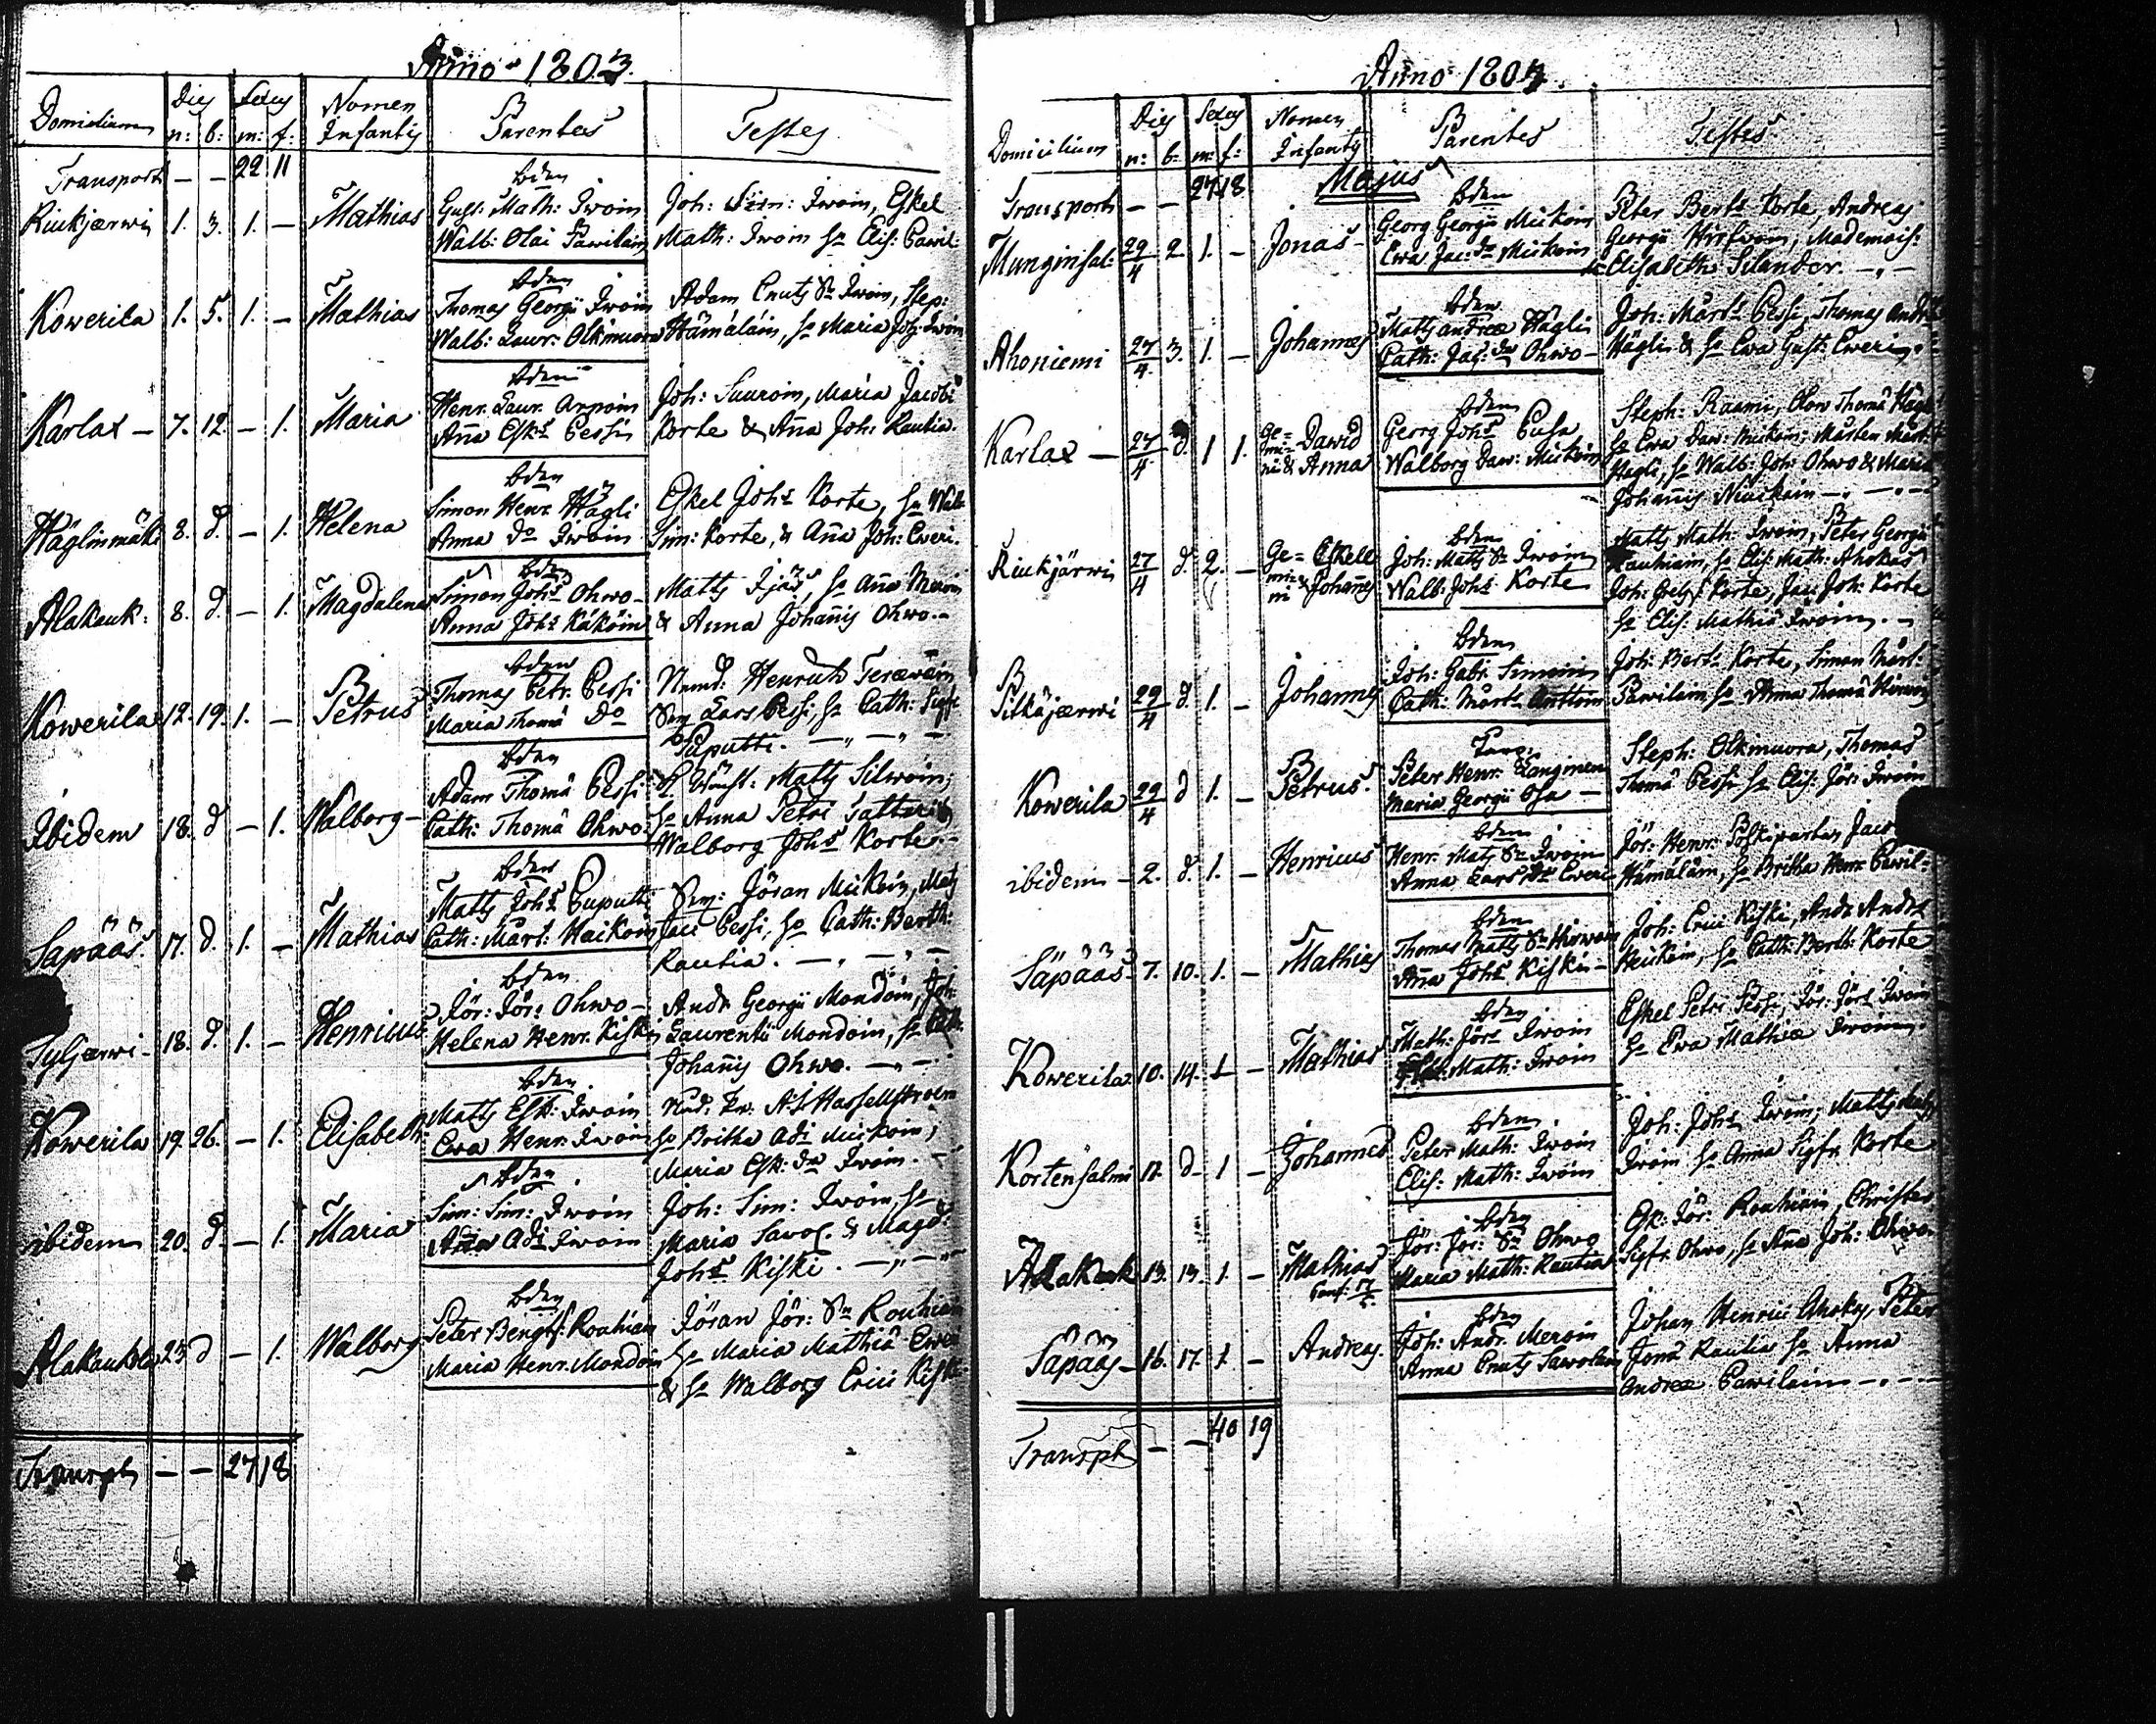 Anno 1803.
Domicilium Dies Sexus Nomen Infantis Parentes Testes
n: b: m: f:
Transport — — 22 11
Riukjærwi 1. 3. 1. — Mathias
bdn
Gust: Math: Iwoin
Walb: Olai Pawilain
Joh: Sim: Iwoin, Eskel
Math: Iwoin h. Elis: Pawil:
Kowerila 1. 5. 1. — Mathias
bdn
Thomas Georgii Iwoin
Walb: Laur: Olkinuora
Adam Cnuts Sn Iwoin, Step:
Hämäläin, h. Maria Joh: Iwoin
Karlax — 7. 12. — 1. Maria
bdn
Henr. Laur. Arpoin
Aña Esks Pessi
Joh: Suuroin, Maria Jacobi
Korte & Aña Joh: Rautia.
Häglinmäki 8. d. — 1. Helena
bdn
Simon Henr. Hägli
Anna Do Iwoin
Eskel Johs Korte, h. Walb
Sim: Korte, & Aña Joh: Eweri.
Alakuuk: 8. d. — 1. Magdalena
bdn
Simon Johs Ohwo —
Anna Johs Käköin
Matts Ijäs, h. Aña Meroin
& Anna Johañis Ohwo. —
Kowerila 12. 19. 1. — Petrus
bdn
Thomas Petr. Pessi
Maria Thomæ Do
Nmd. Henrich Teräwäin
Lars Pessi, h. Cath: Sigf:
Puputti. — „ — „ —
Ibidem 18. d — 1. Walborg —
bdn
Adam Thomæ Pessi
Cath: Thomæ Ohwo
Matts Silwoin;
h. Anna Petri Tattari &
Walborg Johs Korte. —
Sapääs. 17. d. 1. — Mathias
bdn
Matts Johs Puputti
Cath: Mårt: Haikoin
Jöran Mickoin, Mats
Jac: Pessi, h. Cath: Berth:
Rautia. — „ — „ —
Tyljærwi — 18. d. 1. — Henricus
bdn
Jör: Jörs Ohwo —
Helena Henr. Kiski
Andr. Georgii Mondoin, Joh:
Laurentii Mondoin, h.
Johañis Ohwo. — „ —
Kowerila 19. 26. — 1. Elisabeth
bdn
Matts Esk: Iwoin
Ewa Henr. Iwoin
Hassellstroem
h. Britha Adi Mickoin;
Maria Esk: dr Iwoin. —
ibidem 20. d. — 1. Maria
bdn
Sim: Sim: Iwoin
Aña Adi Iwoin
Joh: Sim: Iwoin, h.
Maria Savol. & Magd:
Johs Kiski. — „ —
Alakuukla 23 d — 1. Walborg
bdn
Peter Bengts: Rouhiain
Maria Henr. Mondoin
Jöran Jör: Sn Rouhiain
h. Maria Mathiæ Eweri
& h. Walborg Erici Kiski
Transpt — — 27 18
Anno 1803.
Domicilium Dies Sexus Nomen Infantis Parentes Testes
n: b: m: f:
Transport — — 27 18 Majus
Munginsal: 29/4 2. 1. — Jonas —
bdn
Georg Georgii Mickoin
Ewa Jac: dr Mickoin
Peter Berts Korte, Andreas
Georgii Hirfwon, Mademois:
Elisabeth Silander. — „ —
Ahoniemi 27/4. 3. 1. — Johannes
bdn
Matts Andreæ Häglin
Cath: Jac: dr Ohwo —
Joh: Mårts Pessi, Thomas Andr:
Häglin & h. Ewa Gust: Eweri.
Karlax — 27/4. d. 1 1. Ge= mi= ni Dawid & Anna
bdn
Georg Johs Pusa
Walborg Daw: Mickoin
Steph: Raami, Olow Thomæ Hägli
h. Ewa Daw: Mickoin; Mårten Mårt:
Hägli, h. Walb: Joh: Ohwo & Maria
Johañis Niuckain — „ —
Riukjärwi 27/4 d. 2. — Ge= mi= ni Eskell & Johañes
bdn
Joh: Matts Sn Iwoin
Walb: Johs Korte
Matts Math: Iwoin, Peter Georgii
Rauhiain, h. Elis. Math: Ahokas
Joh: Korte, Jac: Joh: Korte
h. Elis. Mathiæ Iwoin. —
Pitkäjærwi 29/4 d. 1. — Johannes
bdn
Joh: Gabr. Simoin
Cath: Mårts Anttoin
Joh: Berts Korte, Simon Mårt:
Pawilain, h. Anna Thomæ Hirwoin
Kowerila 29/4 d 1. — Petrus.
Peter Henr. Langinen
Maria Georgii Osa —
Steph: Olkinuora, Thomas
Thomæ Pessi h. Elis. Jör: Iwoin
ibidem — 2. d. 1. — Henricus
bdn
Henr. Mats Sn Iwoin
Anna Lars Dr Eweri
Jör: Henr. Poskiparta, Jac:
Hämäläin, h. Britha Henr. Pawil:
Säpääs — 7. 10. 1. — Mathias
bdn
Thomas Matts Sn Hirwoin
Aña Johs Kiski —
Joh: Erici Kiski, Andr. Andrs
Heikoin, h. Cath: Berth: Korte
Kowerila 10. 14. 1 — Mathias
bdn
Math: Jörs Iwoin
Math: Iwoin
Eskel Petri Pessi, Jör: Jörs Iwoin
h. Ewa Mathiæ Iwoin.
Kortensalmi 12. d. 1 — Johannes
bdn
Peter Math: Iwoin
Elis: Math: Iwoin
Joh: Johs Iwoin, Matts Mats
Iwoin h. Anna Sigfr. Korte
Alakuuk 13. 13. 1. — Mathias
bdn
Jör: Jör: Sn Ohwo
Maria Math: Rautia
Esk: Jör: Rouhiain, Christer
Sigfr. Ohwo, h. Aña Joh: Ohwo.
Säpääs — 16. 17. 1. — Andreas.
bdn
Joh: Andr. Meroin
Anna Cnuts Sawolain
Johan Henrici Ahokas, Peter
Jonæ Rautia h. Anna
Andreæ Pawilain — „ —
Transpt — — 40 19